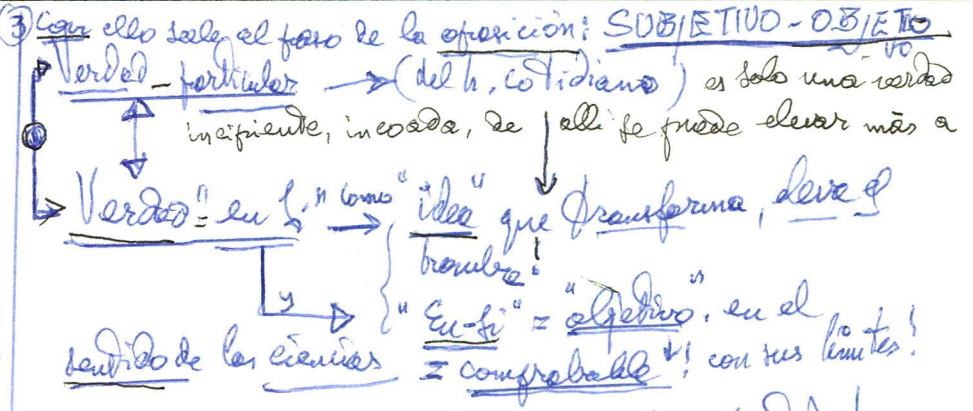 ③ Con ello sale al paso de la oposición: SUBJETIVO - OBJETIVO
Verdad - particular → (del h. cotidiano) es solo una verdad
incipiente, incoada, de allí se puede elevar más a
Verdad "en sí" como "idea" que transforma, eleva al
hombre!
y "En-sí" = "objetivo", en el
sentido de las ciencias = comprobable! con sus límites!